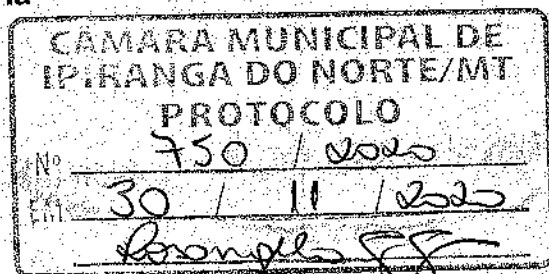 CÂMARA MUNICIPAL DE
IPIRANGA DO NORTE/MT
PROTOCOLO
Nº 750 / 2020
Em 30 / 11 / 2020